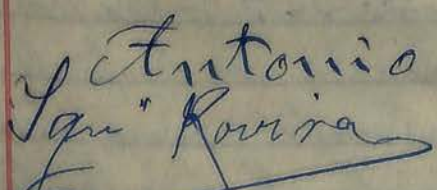 Antonio
Ign" Rovira